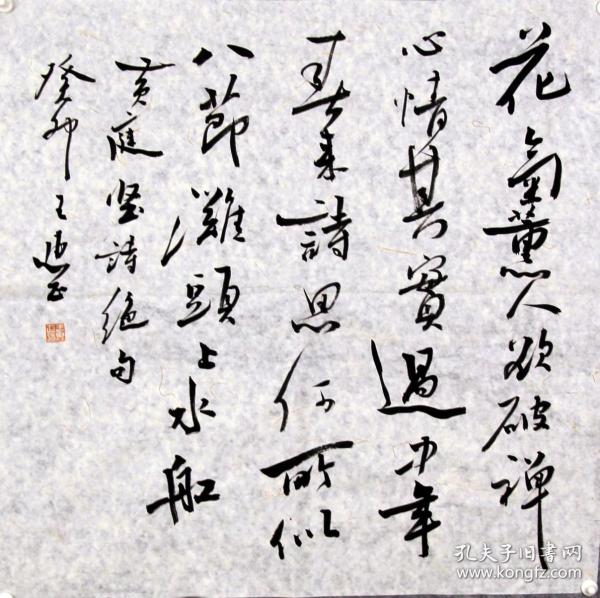 花氣薰人欲破禅
心情其實過中年
春来詩思何所似
八節灘頭上水船
黄庭坚詩绝句
癸卯 王
孔夫子旧書网
www.kongfz.com